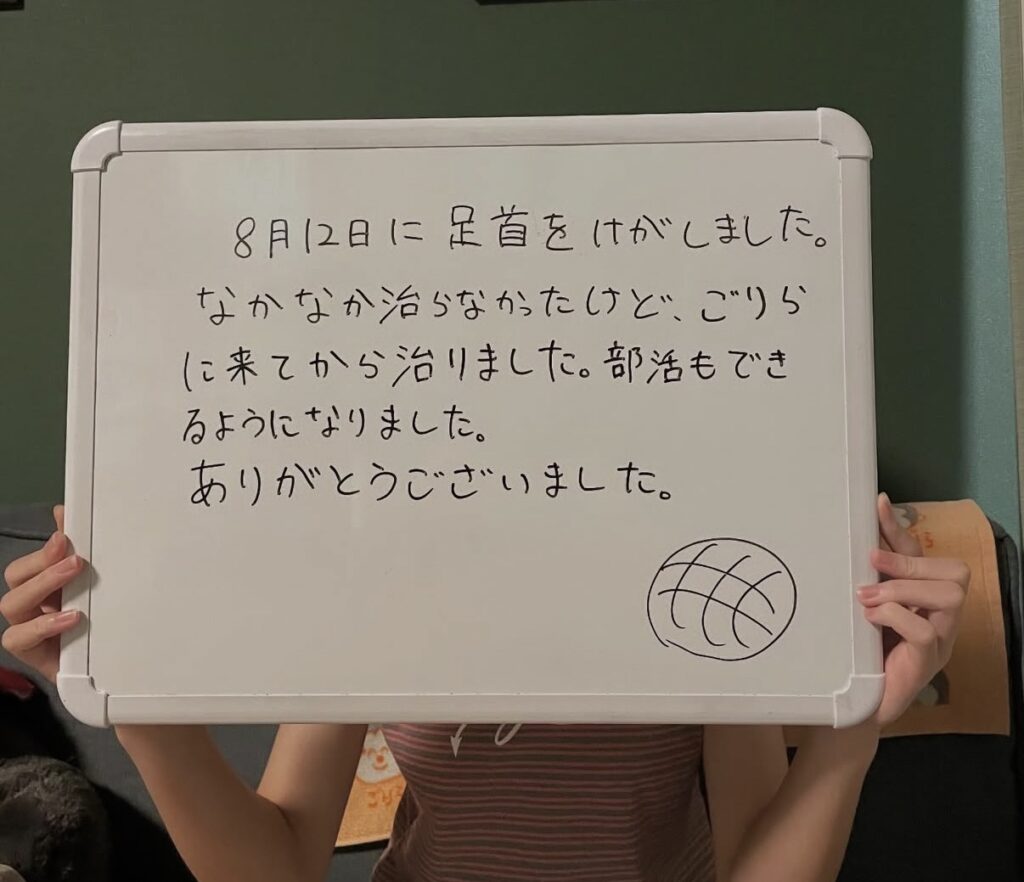 8月12日に足首をけがしました。
なかなか治らなかったけど、ごりら
に来てから治りました。部活もでき
るようになりました。
ありがとうございました。